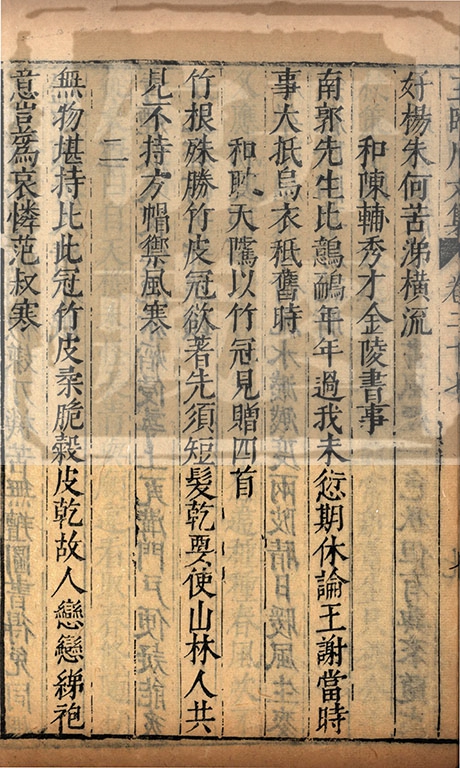 王臨川文集 卷三十七
好楊朱何苦涕橫流
和陳輔秀才金陵書事
南郭先生比鷾鴯年年過我未愆期休論王謝當時
事大抵烏衣秖舊時
和耿天隲以竹冠見贈四首
竹根殊勝竹皮冠欲著先須短髮乾要使山林人共
見不持方帽禦風寒
二
無物堪持比此冠竹皮柔脆縠皮乾故人戀戀綈袍
意豈為哀憐范叔寒